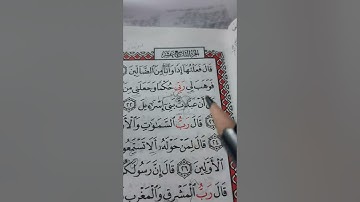 قَالَ فَعَلْتُهَا إِذًا وَأَنَا۠ مِنَ ٱلضَّآلِّينَ
فَوَهَبَ لِى رَبِّى حُكْمًا وَجَعَلَنِى مِنَ
أَنْ عَبَّدتَّ بَنِىٓ إِسْرَٰٓءِيلَ ٢٢
قَالَ رَبُّ ٱلسَّمَٰوَٰتِ وَٱلْأَ
٢٤ قَالَ لِمَنْ حَوْلَهُۥٓ أَلَا تَسْتَمِعُو
ٱلْأَوَّلِينَ ٢٦ قَالَ إِنَّ رَسُولَكُ
قَالَ رَبُّ ٱلْمَشْرِقِ وَٱلْمَغْرِبِ